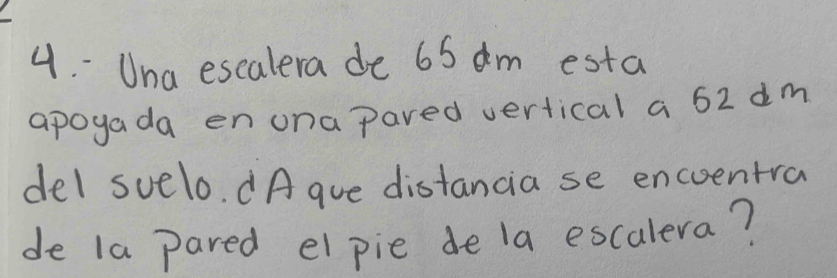 4.- Una escalera de 65 dm esta
apoyada en una pared vertical a 52 dm
del suelo. ¿A que distancia se encuentra
de la pared el pie de la escalera?